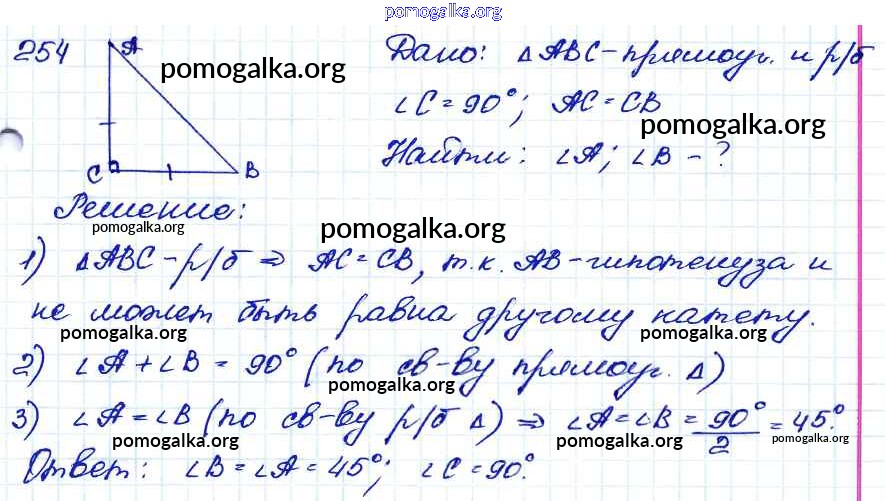 pomogalka.org
254 A Дано: ΔABC - прямоуг. и р/б
pomogalka.org
∠C = 90°; AC = CB
pomogalka.org
C B Найти: ∠A; ∠B - ?
Решение:
pomogalka.org
pomogalka.org
1) ΔABC - р/б ⇒ AC = CB, т.к. AB - гипотенуза и
не может быть равна другому катету.
pomogalka.org pomogalka.org
2) ∠A + ∠B = 90° (по св-ву прямоуг. Δ)
pomogalka.org
3) ∠A = ∠B (по св-ву р/б Δ) ⇒ ∠A = ∠B = 90°/2 = 45°.
pomogalka.org pomogalka.org pomogalka.org
Ответ: ∠B = ∠A = 45°; ∠C = 90°.